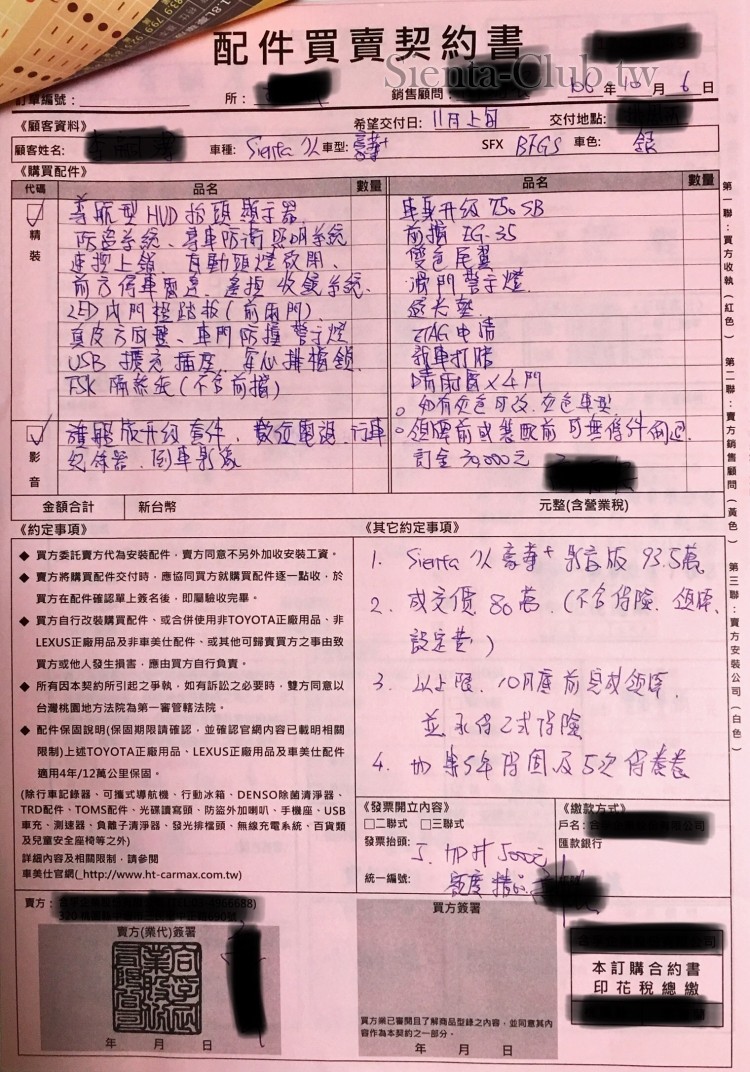 配件買賣契約書
Sienta-Club.tw
訂單編號： 所： 銷售顧問： 106 年 10 月 6 日
《顧客資料》 希望交付日: 11月上旬 交付地點:
顧客姓名: 車種: Sienta 7人 車型: 豪華+ SFX BTGS 車色: 銀
《購買配件》
代碼 品名 數量 品名 數量
精裝
導航型 HUD 抬頭顯示器.
防盜系統、尋車防衛照明系統
速控上鎖. 自動頭燈啟閉.
前方停車雷達. 遙控收鏡系統.
LED 內門檻踏板(前兩門).
真皮方向盤、車門防撞警示燈
USB 擴充插座. 牟心排檔鎖.
FSK 隔熱紙(不含前擋)
車身升級 750 SB
前擋 IG-35
雙色尾翼
滑門警示燈.
ETAG 申請
新車打蠟
晴雨窗×4門
。如有灰色可改.灰色車型
影音
旗艦版升級套件. 數位電視.行車
紀錄器. 倒車影像
。領牌前或裝配前可無條件倒退.
訂金 20000元
金額合計 新台幣 元整(含營業稅)
《約定事項》
◆ 買方委託賣方代為安裝配件，賣方同意不另外加收安裝工資。
◆ 賣方將購買配件交付時，應協同買方就購買配件逐一點收，於
買方在配件確認單上簽名後，即屬驗收完畢。
◆ 買方自行改裝購買配件、或合併使用非TOYOTA正廠用品、非
LEXUS正廠用品及非車美仕配件、或其他可歸責買方之事由致
買方或他人發生損害，應由買方自行負責。
◆ 所有因本契約所引起之爭執，如有訴訟之必要時，雙方同意以
台灣桃園地方法院為第一審管轄法院。
◆ 配件保固說明(保固期限請確認，並確認官網內容已載明相關
限制)上述TOYOTA正廠用品、LEXUS正廠用品及車美仕配件
適用4年/12萬公里保固。
(除行車記錄器、可攜式導航機、行動冰箱、DENSO除菌清淨器、
TRD配件、TOMS配件、光碟讀寫頭、防盜外加喇叭、手機座、USB
車充、測速器、負離子清淨器、發光排檔頭、無線充電系統、百貨類
及兒童安全座椅等之外)
詳細內容及相關限制，請參閱
車美仕官網(_http://www.ht-carmax.com.tw)
《其它約定事項》
1. Sienta 7人 豪華+ 影音版 93.5萬
2. 成交價 80萬. (不含保險. 領牌.
設定費)
3. 以上限. 10月底前完成領牌.
並承保乙式保險
4. 加乘5年保固及5次保養卷
《發票開立內容》
□二聯式 □三聯式
發票抬頭:
5. 加升 5000元
統一編號:
額度精品
《繳款方式》
戶名:
匯款銀行
賣方：
賣方(業代)簽署
年 月 日
買方簽署
買方業已審閱且了解商品型錄之內容，並同意其內
容作為本契約之一部分。
年 月 日
本訂購合約書
印花稅總繳
第一聯：買方收執(紅色) 第二聯：賣方銷售顧問(黃色) 第三聯：賣方安裝公司(白色)